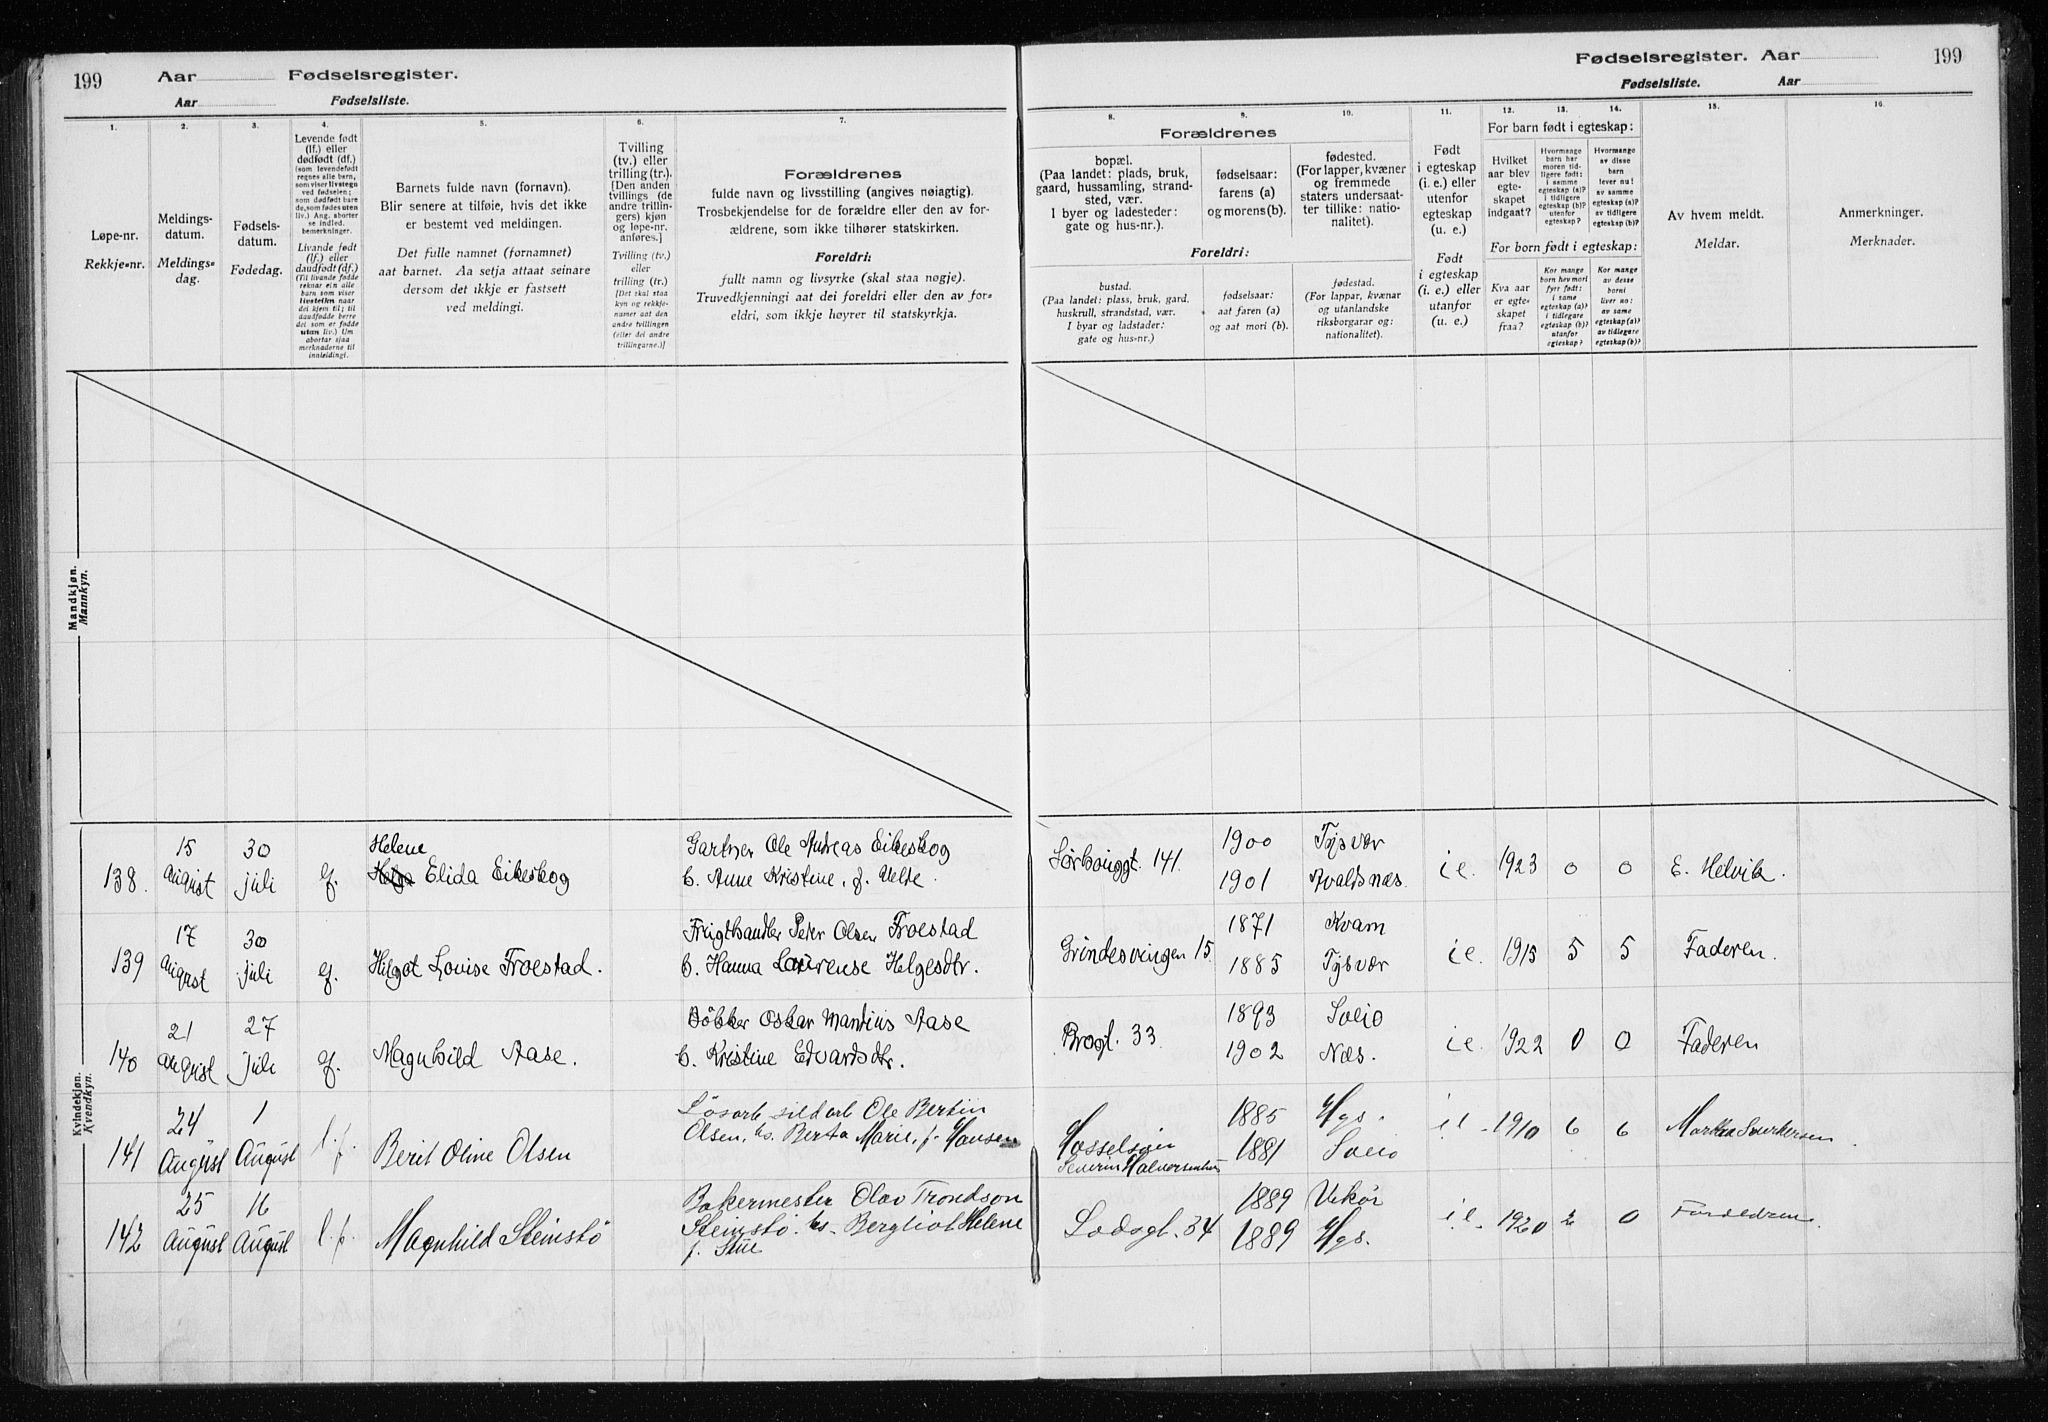 199
Aar
Fødselsregister.
Aar
Fødselsliste.
1.
Løpe-nr.
Rekkje-nr.
2.
Meldings-
datum.
Meldings-
dag.
3.
Fødsels-
datum.
Fødedag.
4.
Levende født
(lf.) eller
dødfødt (df.)
(som levendefødt
regnes alle barn,
som viser livstegn
ved fødselen;
som dødfødt bare
de, som fødes uten
liv.) Ang. aborter
se indled.
bemerkninger.
Livande født
(lf.) eller
daudfødt (df.)
(Til livande fødde
reknar ein alle
barn som viser
livsteikn naar
dei kjem til; til
daudfødde berre
dei som er fødde
utan liv.) Um
abortar sjaa
merknaderne til
innleidingi.
5.
Barnets fulde navn (fornavn).
Blir senere at tilføie, hvis det ikke
er bestemt ved meldingen.
Det fulle namnet (fornamnet)
aat barnet. Aa setja attaat seinare
dersom det ikkje er fastsett
ved meldingi.
6.
Tvilling
(tv.) eller
trilling (tr.).
[Den anden
tvillings (de
andre trillin-
gers) kjøn
og løpe-nr.
anføres.]
Tvilling (tv.)
eller
trilling (tr.)
[Det skal staa
kyn og rekkje-
numer aat den
andre tvillingen
(eller dei andre
trillingarne.)]
7.
Forældrenes
fulde navn og livsstilling (angives nøiagtig).
Trosbekjendelse for de forældre eller den av for-
ældrene, som ikke tilhører statskirken.
Foreldri:
fullt namn og livsyrke (skal staa nøgje).
Truvedkjenningi aat dei foreldri eller den av for-
eldri, som ikkje høyrer til statskyrkja.
Mandkjøn.
Mannkyn.
Kvindekjøn.
Kvendkyn.
138.
15
August
30
juli
lf.
Helene
Helga Elida Eikeskog
Gartner Ole Andreas Eikeskog
h. Anne Kristine, f. Velde.
139
17
August
30
juli
lf.
Helgot Lovise Froestad.
Frugthandler Peter Olsen Froestad
h. Hanna Laurense Helgesdtr.
140
21
August
27
juli
lf.
Magnhild Aase.
Bøkker Oskar Mandius Aase
h. Kristine Edvardsdtr.
141
24
August
1
August
l.f.
Berit Oline Olsen
Løsarb. sildarb Ole Bertin
Olsen, hs. Berta Marie, f. Hansen
142
25
August
16
August
l.f.
Magnhild Steinstø
Bakermester Olav Trondson
Steinstø. hs. Bergliot Helene
f. Stue
Fødselsregister. Aar
199
Fødselsliste.
Aar
8.
9.
10.
Forældrenes
bopæl.
(Paa landet: plads, bruk,
gaard, hussamling, strand-
sted, vær.
I byer og ladesteder:
gate og hus-nr.).
fødselsaar:
farens (a)
og morens (b).
fødested.
(For lapper, kvæner
og fremmede
staters undersaat-
ter tillike: natio-
nalitet).
Foreldri:
bustad.
(Paa landet: plass, bruk, gard,
huskrull, strandstad, vær.
I byar og ladstader:
gate og hus-nr.)
fødselsaar:
aat faren (a)
og aat mori (b).
fødestad.
(For lappar, kvænar
og utanlandske
riksborgarar og:
nationalitet).
11.
Født
i egteskap
(i. e.) eller
utenfor
egteskap
(u. e.)
Født
i egteskap
(i. e.) eller
utanfor
(u. e.)
12.
13.
14.
For barn født i egteskap:
Hvilket
aar blev
egte-
skapet
indgaat?
Hvormange
barn har
moren tid-
ligere født:
i samme
egteskap (a)?
i tidligere
egteskap (b)?
utenfor
egteskap?
Hvormange
av disse
barn
lever nu?
av samme
egteskap (a)?
av tidligere
egteskap (b)?
For born født i egteskap:
Kva aar
er egte-
skapet
fraa?
Kor mange
born hev mori
fyrr født:
i same
egteskap (a)?
i tidlegare
egteskap (b)?
utanfor
egteskap?
Kor mange
av desse
borni
liver no:
av same
egteskap (a)?
av tidlegare
egteskap (b)?
15.
Av hvem meldt.
Meldar.
16.
Anmerkninger.
Merknader.
Sørhauggt. 141.
1900
1901
Tysvær
Avaldsnæs.
i e.
1923
0
0
E. Helvik.
Grindesvingen 15.
1871
1885
Kvam
Tysvær
i e.
1915
5
5
Faderen.
Brogt. 33
1893
1902
Sveio
Næs.
i e.
1922
0
0
Faderen
Hasseløen
Severin Halvorsenhus
1885
1881
Hgs.
Sveio
i e.
1910
6
6
Martha Sverkersen
Lodsgt. 34
1889
1889
Vikør
Hgs.
i. e.
1920
2
0
Forældrene